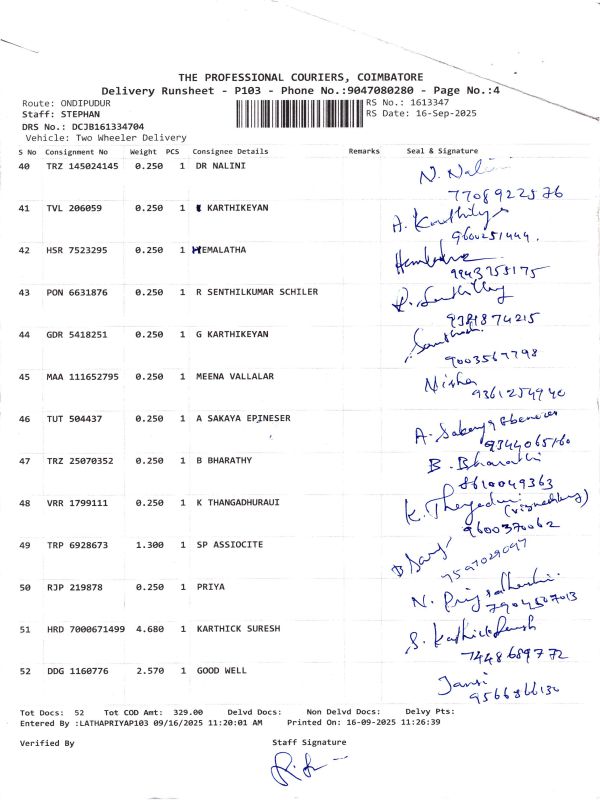 THE PROFESSIONAL COURIERS, COIMBATORE
Delivery Runsheet - P103 - Phone No.:9047080280 - Page No.:4
Route: ONDIPUDUR RS No.: 1613347
Staff: STEPHAN RS Date: 16-Sep-2025
DRS No.: DCJB161334704
Vehicle: Two Wheeler Delivery
S No Consignment No Weight PCS Consignee Details Remarks Seal & Signature
40 TRZ 145024145 0.250 1 DR NALINI N. Nalini
7708922576
41 TVL 206059 0.250 1 KARTHIKEYAN A. Karthikeya
9600251444.
42 HSR 7523295 0.250 1 HEMALATHA Hemlatha
9943755175
43 PON 6631876 0.250 1 R SENTHILKUMAR SCHILER
9381874215
44 GDR 5418251 0.250 1 G KARTHIKEYAN
9003567798
45 MAA 111652795 0.250 1 MEENA VALLALAR Nisha
9361254940
46 TUT 504437 0.250 1 A SAKAYA EPINESER A. Sakaya Ebeneser
9344065160
47 TRZ 25070352 0.250 1 B BHARATHY B. Bharathi
8610049363
48 VRR 1799111 0.250 1 K THANGADHURAUI K.
9600370062
49 TRP 6928673 1.300 1 SP ASSIOCITE
7597029097
50 RJP 219878 0.250 1 PRIYA N. Priyadharshini
7904507013
51 HRD 7000671499 4.680 1 KARTHICK SURESH S. Karthick Suresh
7448689772
52 DDG 1160776 2.570 1 GOOD WELL Jansi
9566866130
Tot Docs: 52 Tot COD Amt: 329.00 Delvd Docs: Non Delvd Docs: Delvy Pts:
Entered By :LATHAPRIYAP103 09/16/2025 11:20:01 AM Printed On: 16-09-2025 11:26:39
Verified By Staff Signature